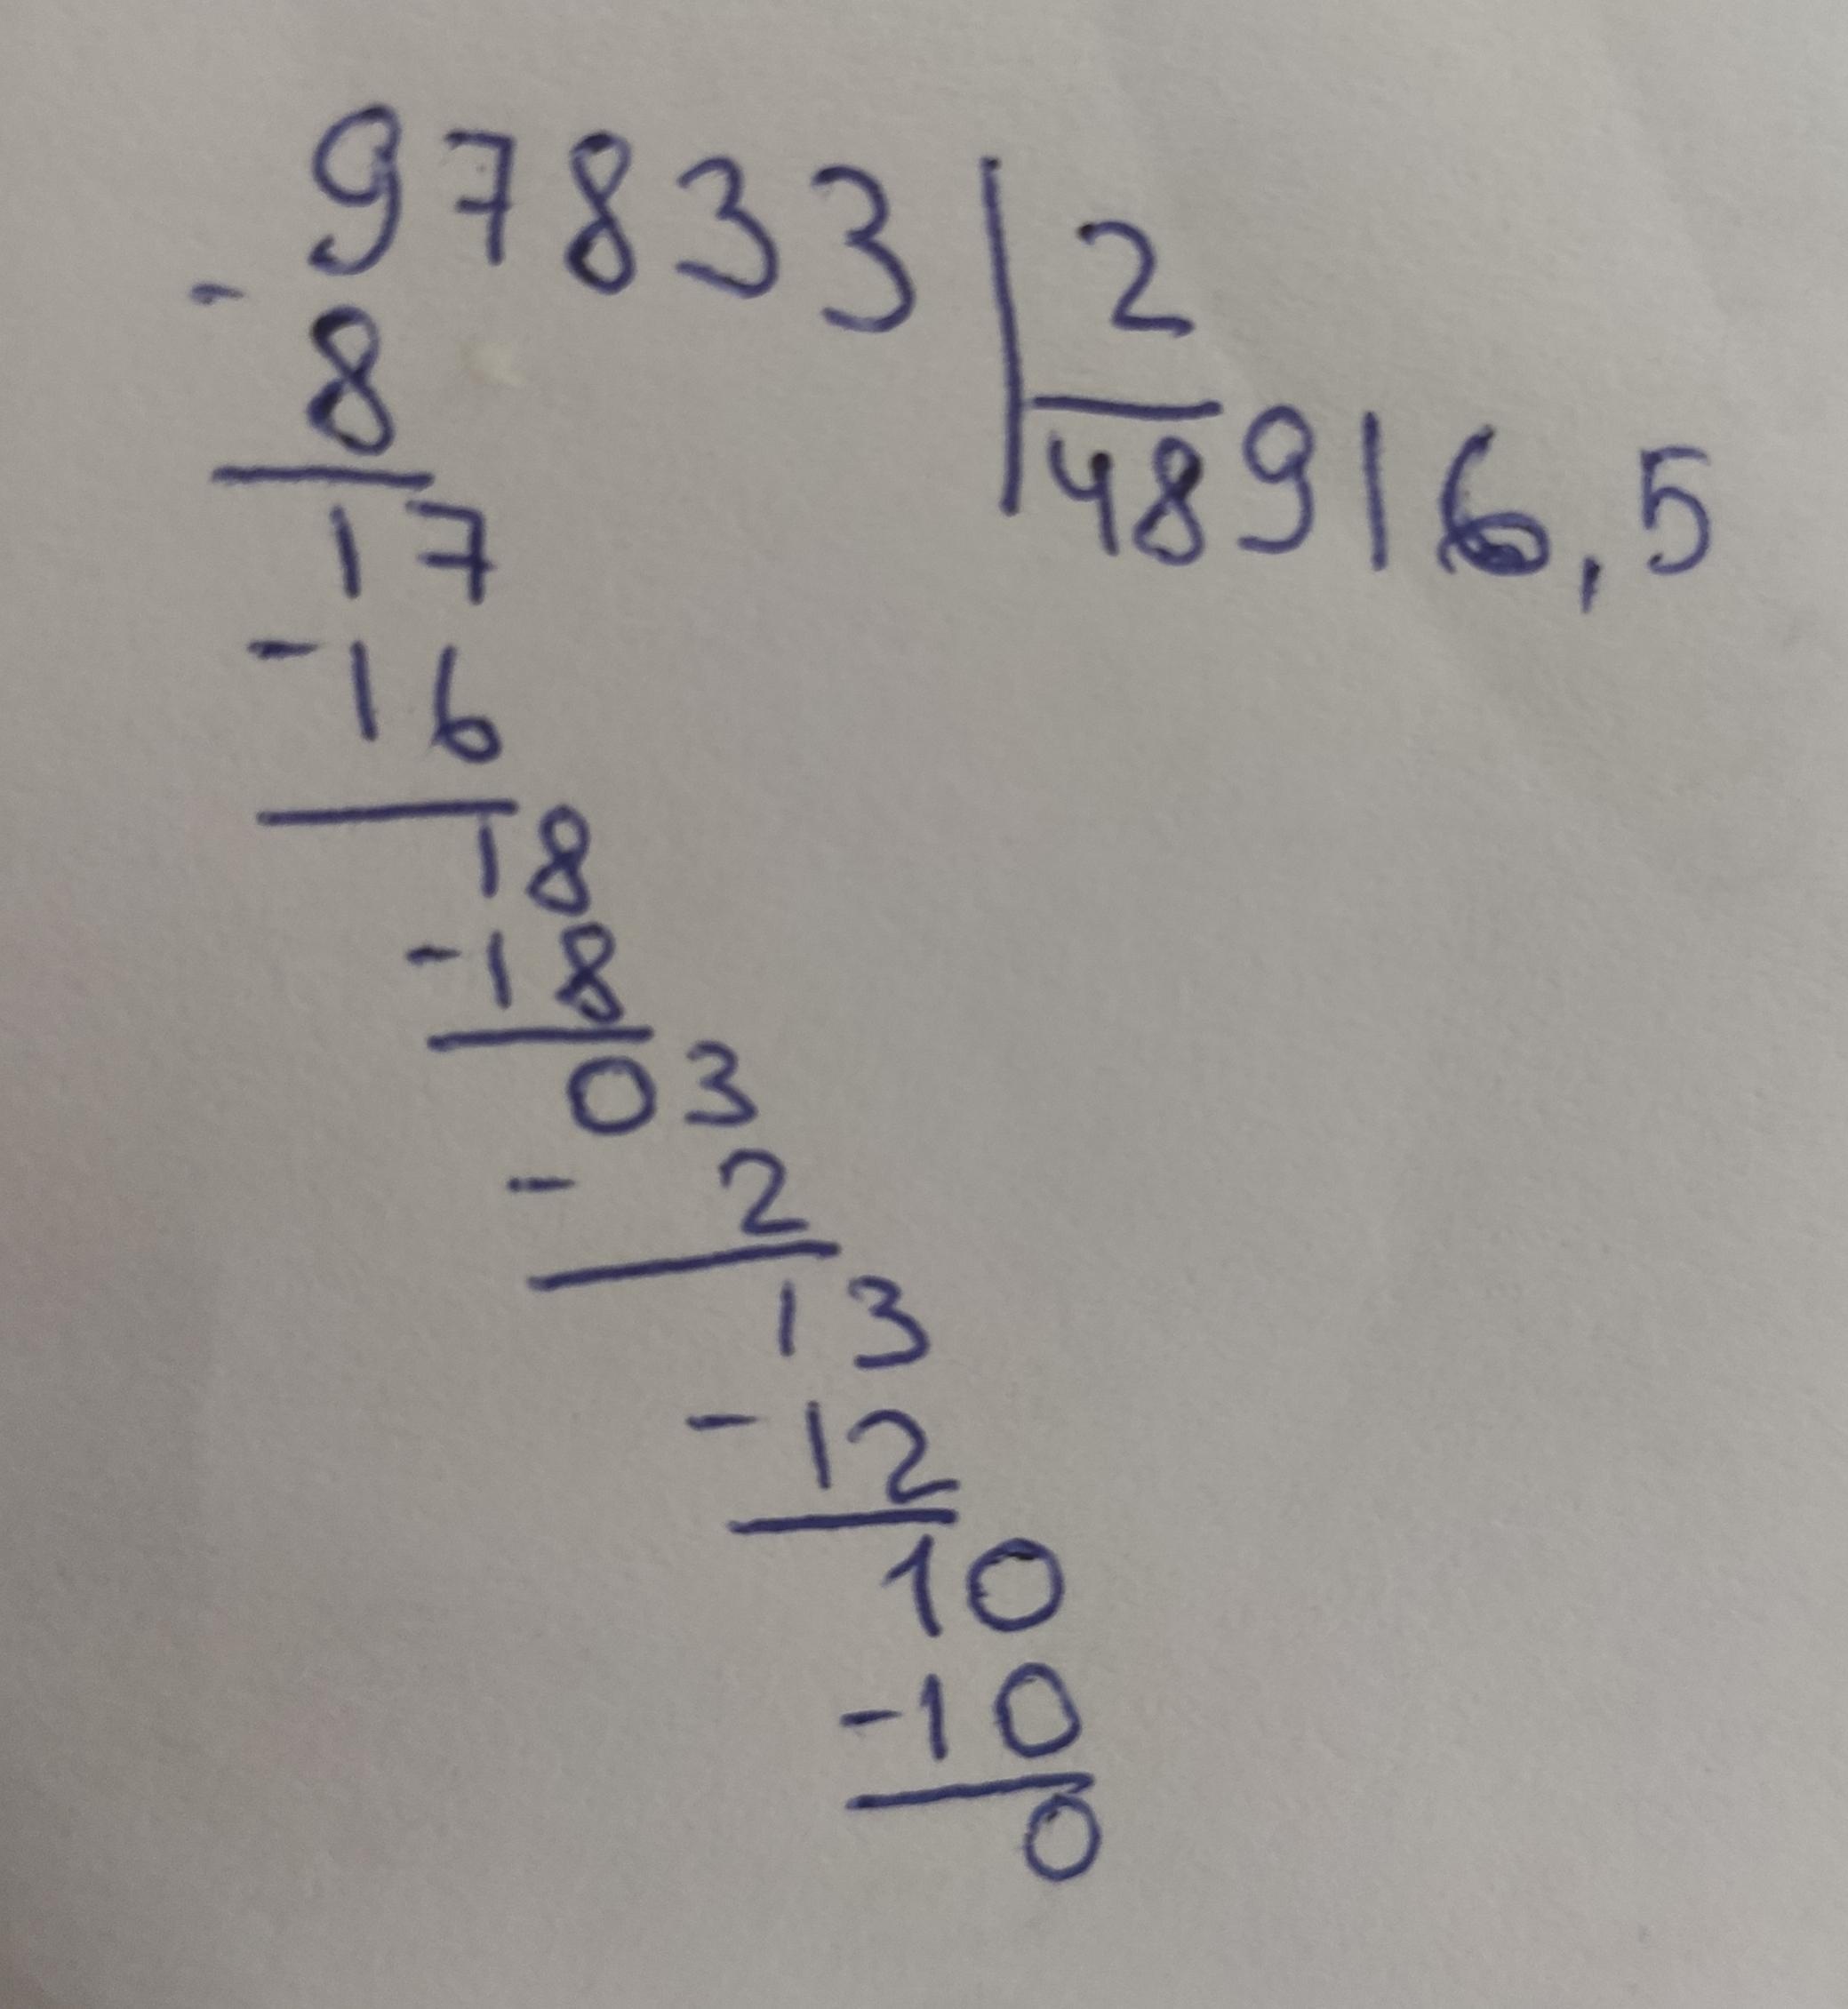 97833 | 2
- 8
48916,5
17
-16
18
-18
03
- 2
13
-12
10
-10
0